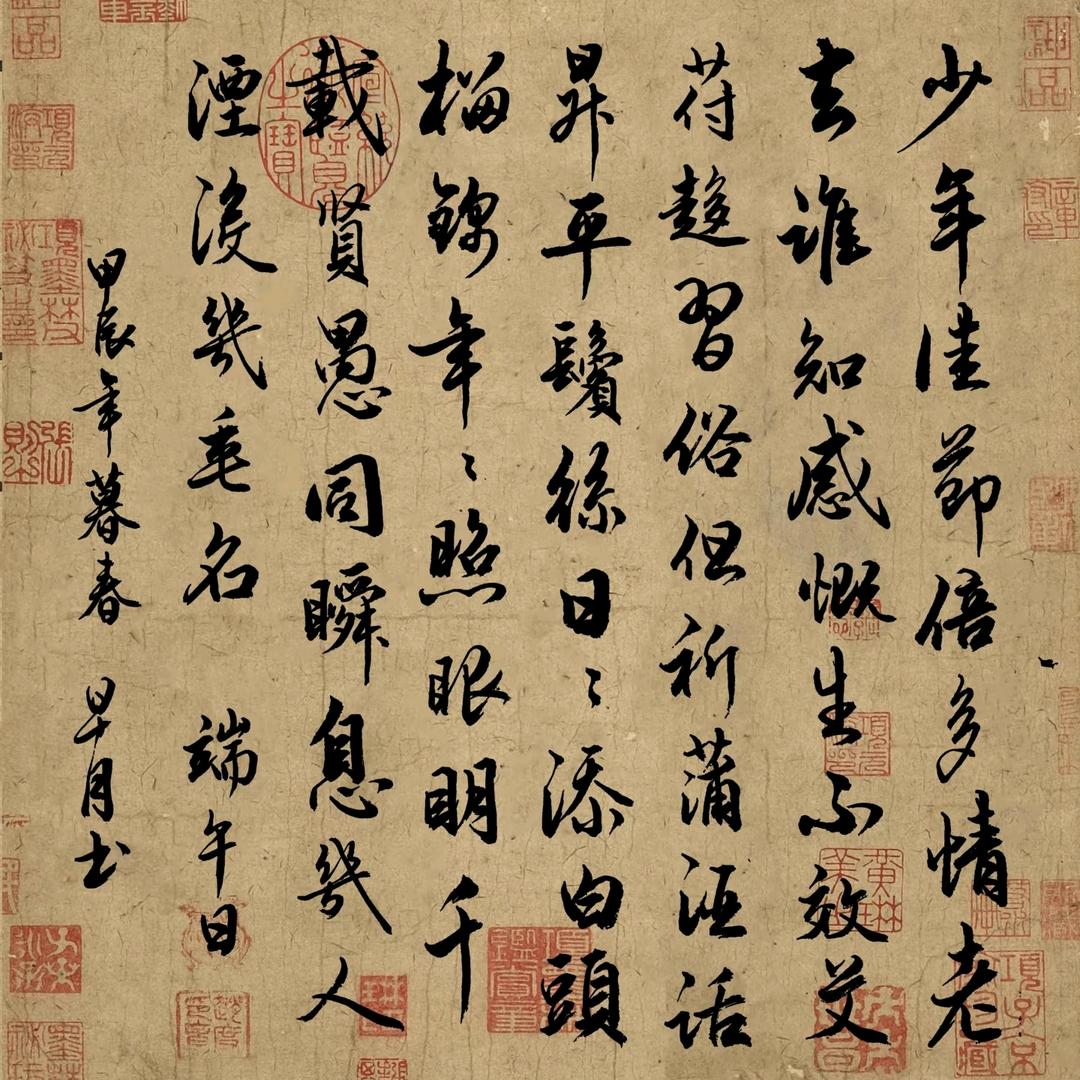 少年佳節倍多情老
去誰知感慨生不效艾
苻趍習俗但祈蒲酒話
昇平鬢絲日〻添白頭
榴錦年〻照眼明千
載賢愚同瞬息幾人
湮沒幾垂名 端午日
甲辰年暮春 早月书